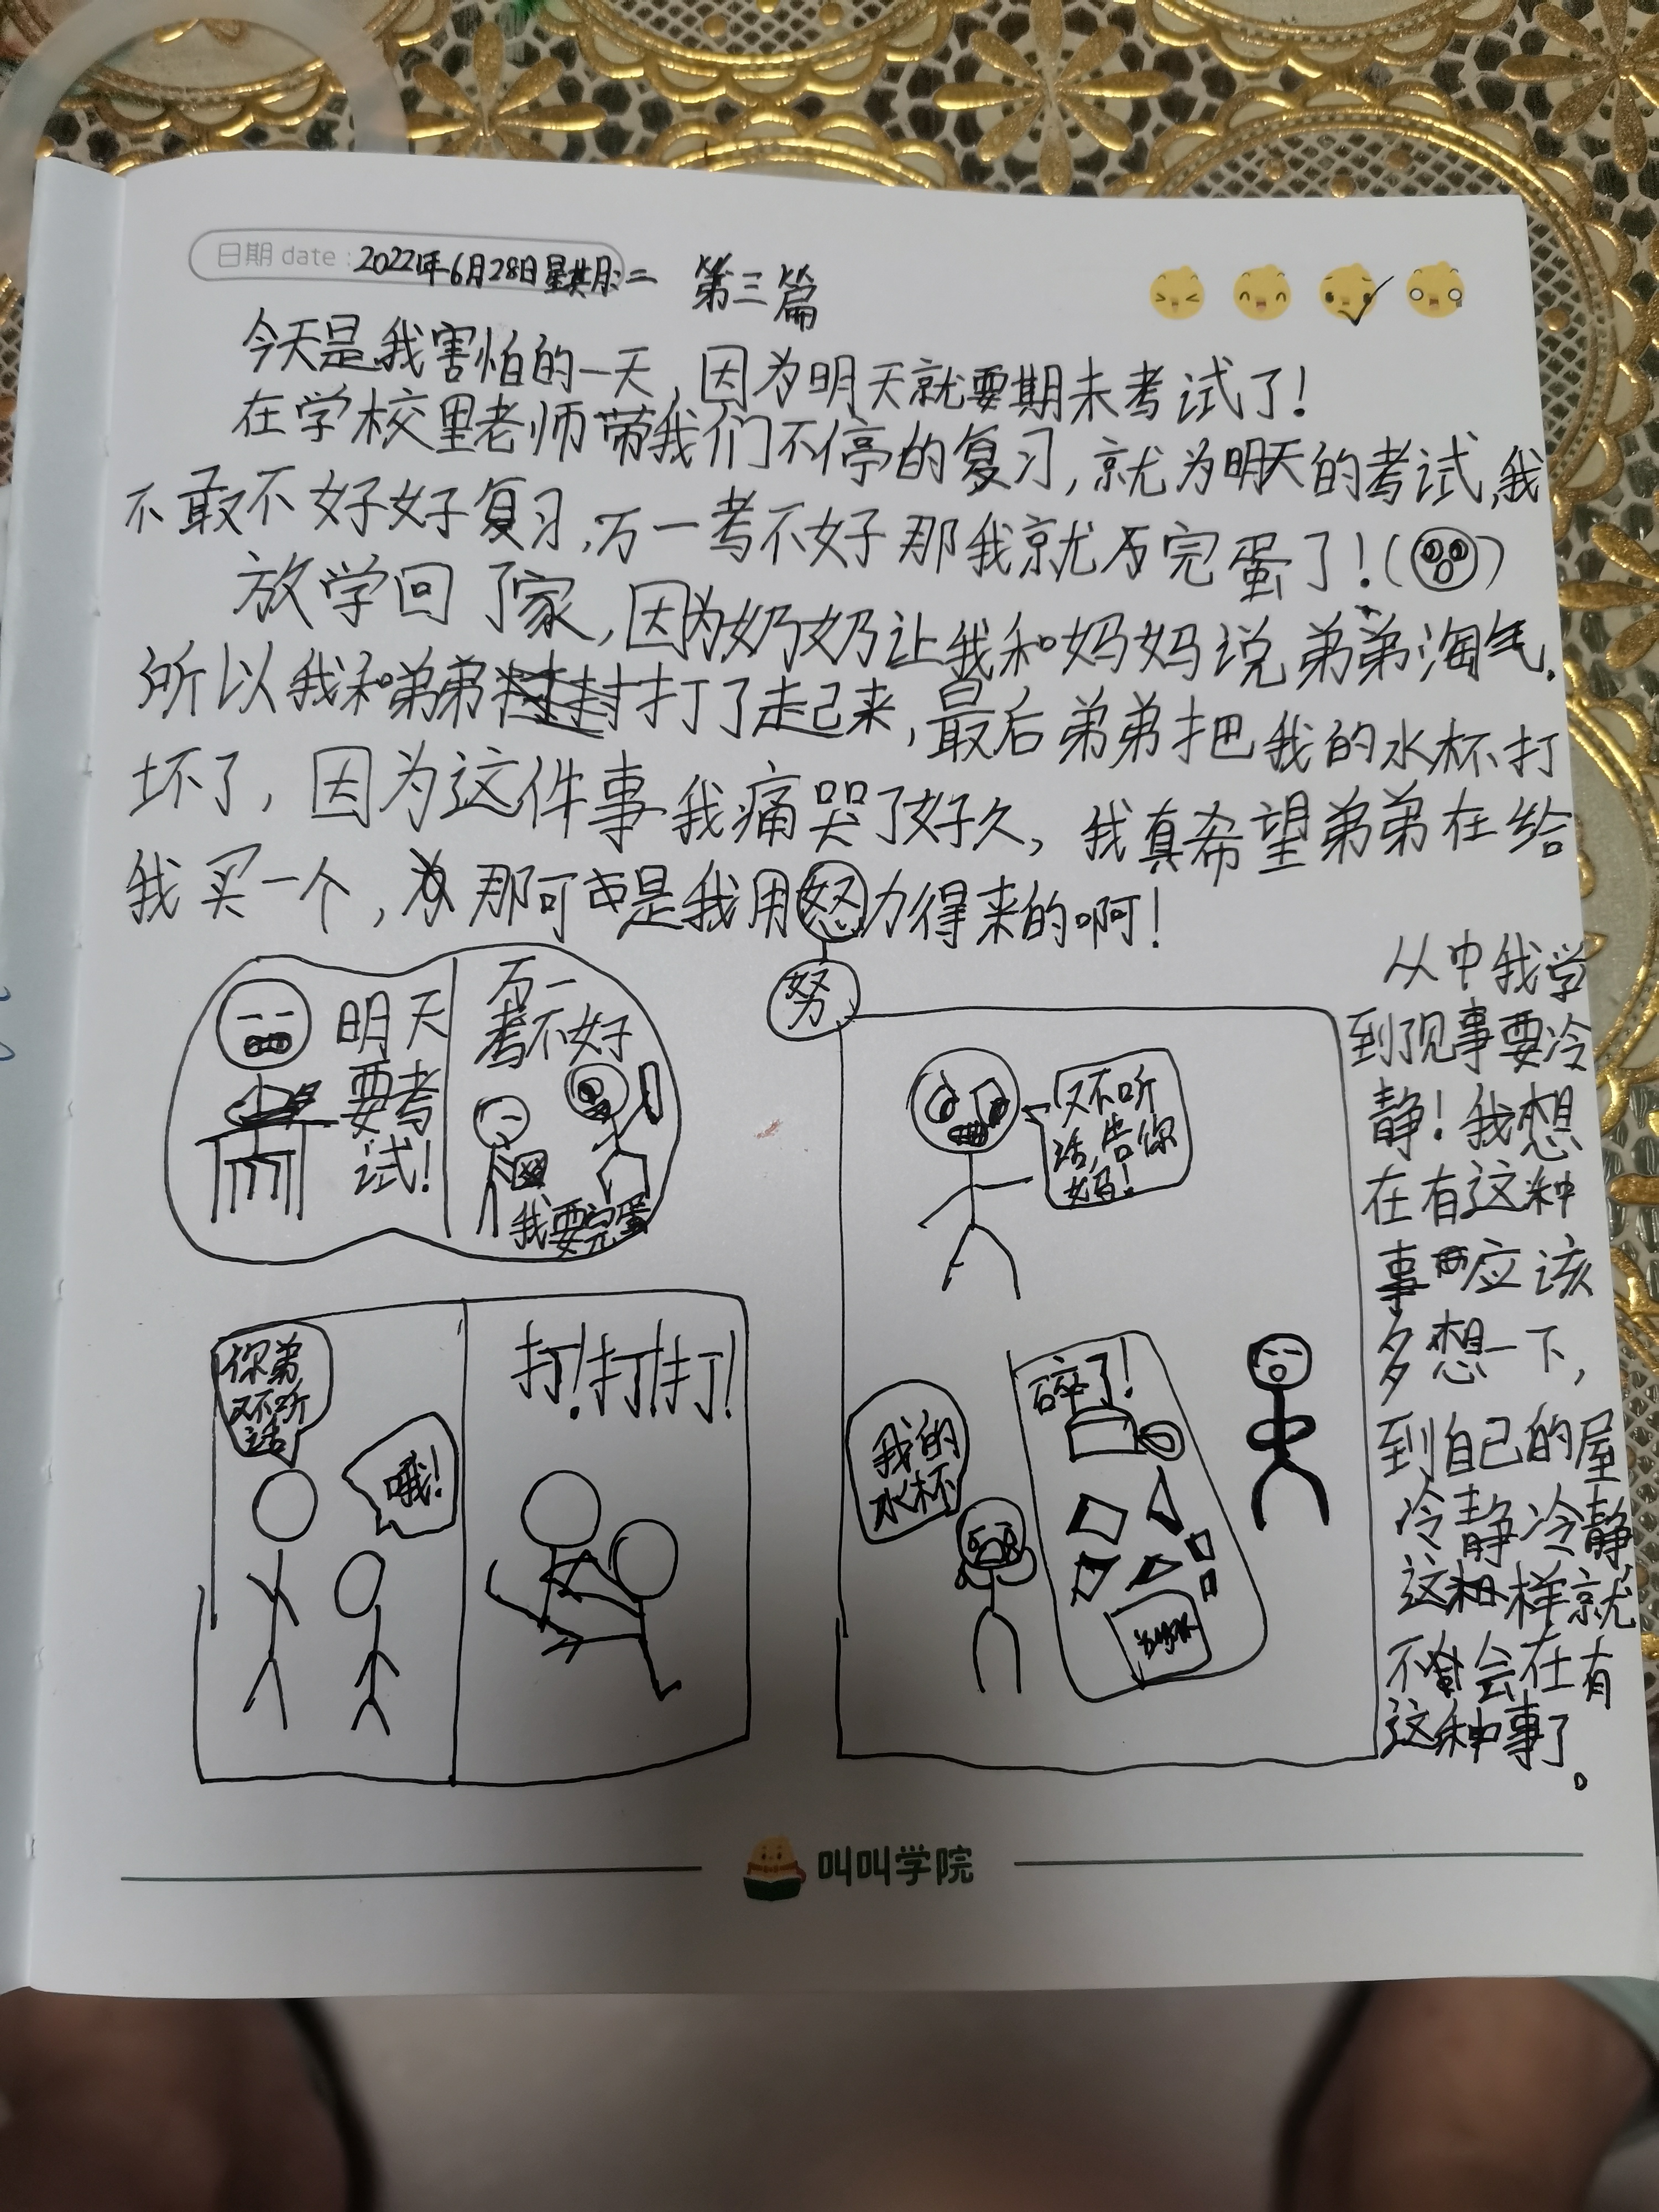 日期 date：2022年6月28日星期二 第三篇
今天是我害怕的一天，因为明天就要期末考试了！
在学校里老师带我们不停的复习，就为明天的考试，我
不敢不好好复习，万一考不好那我就完蛋了！（）
放学回了家，因为奶奶让我和妈妈说弟弟淘气，
所以我和弟弟打了起来，最后弟弟把我的水杯打
坏了，因为这件事我痛哭了好久，我真希望弟弟在给
我买一个，那可是我用怒力得来的啊！
努
明天
要考
试！
万一
考不好
我要完蛋
又不听
话，告你
妈！
你弟
又不听
话
哦！
打！打！打！
我的
水杯
碎了！
从中我学
到了见事要冷
静！我想
在有这种
事应该
多想一下，
到自己的屋
冷静冷静
这样就
不会在有
这种事了。
叫叫学院